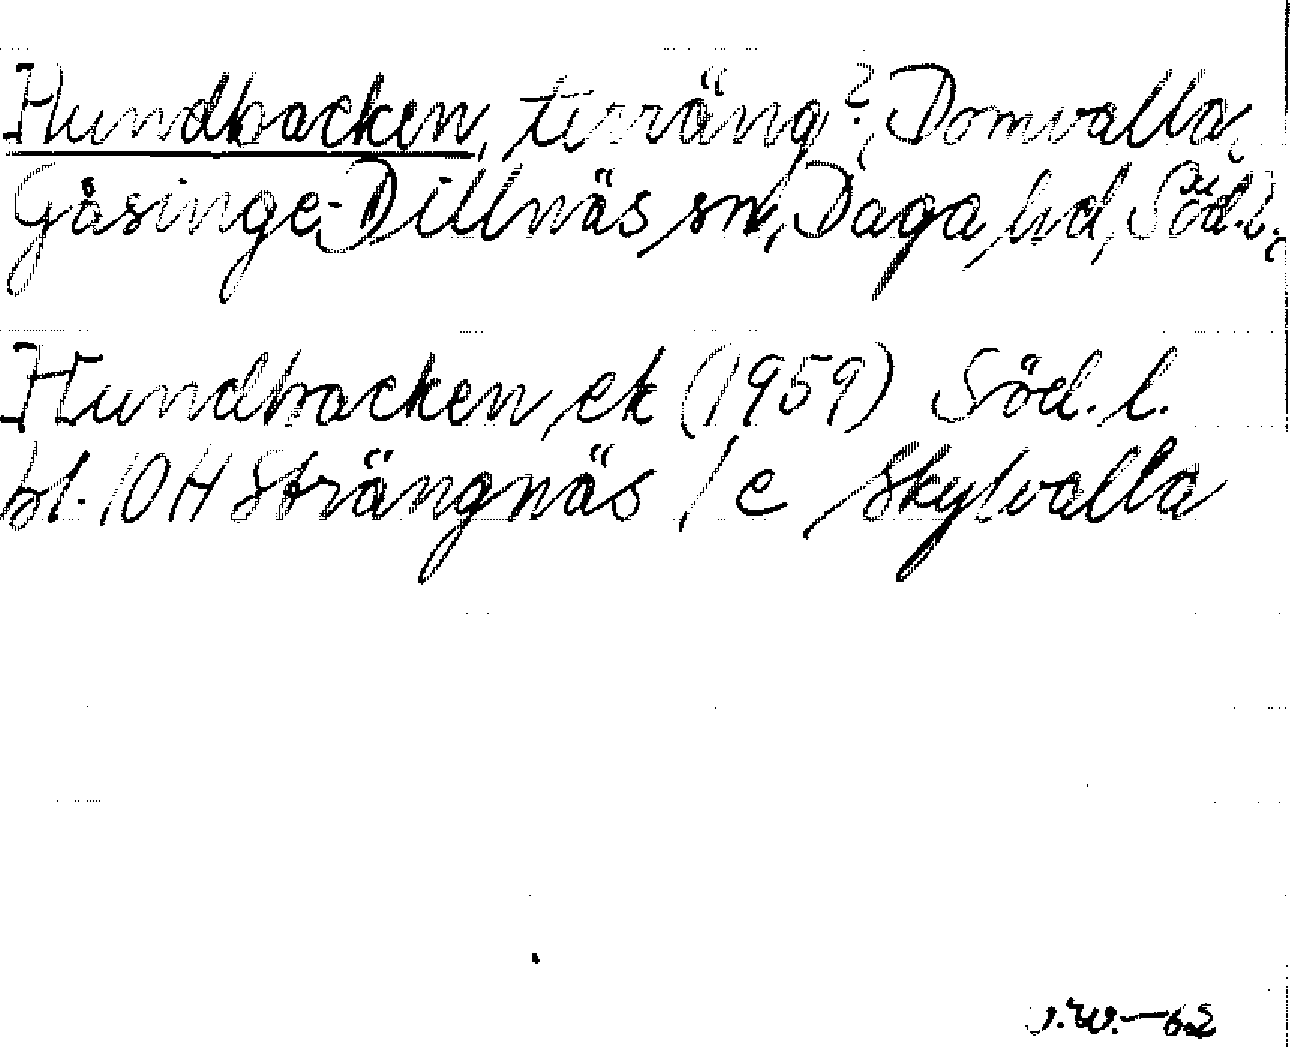 Hundbacken, terräng?, Domvalla,
Gåsinge-Dillnäs sn, Daga hd, Söd.l.
Hundbacken ek (1959) Söd. l.
bl. 10H Strängnäs / c Skytvalla
J.W.–62